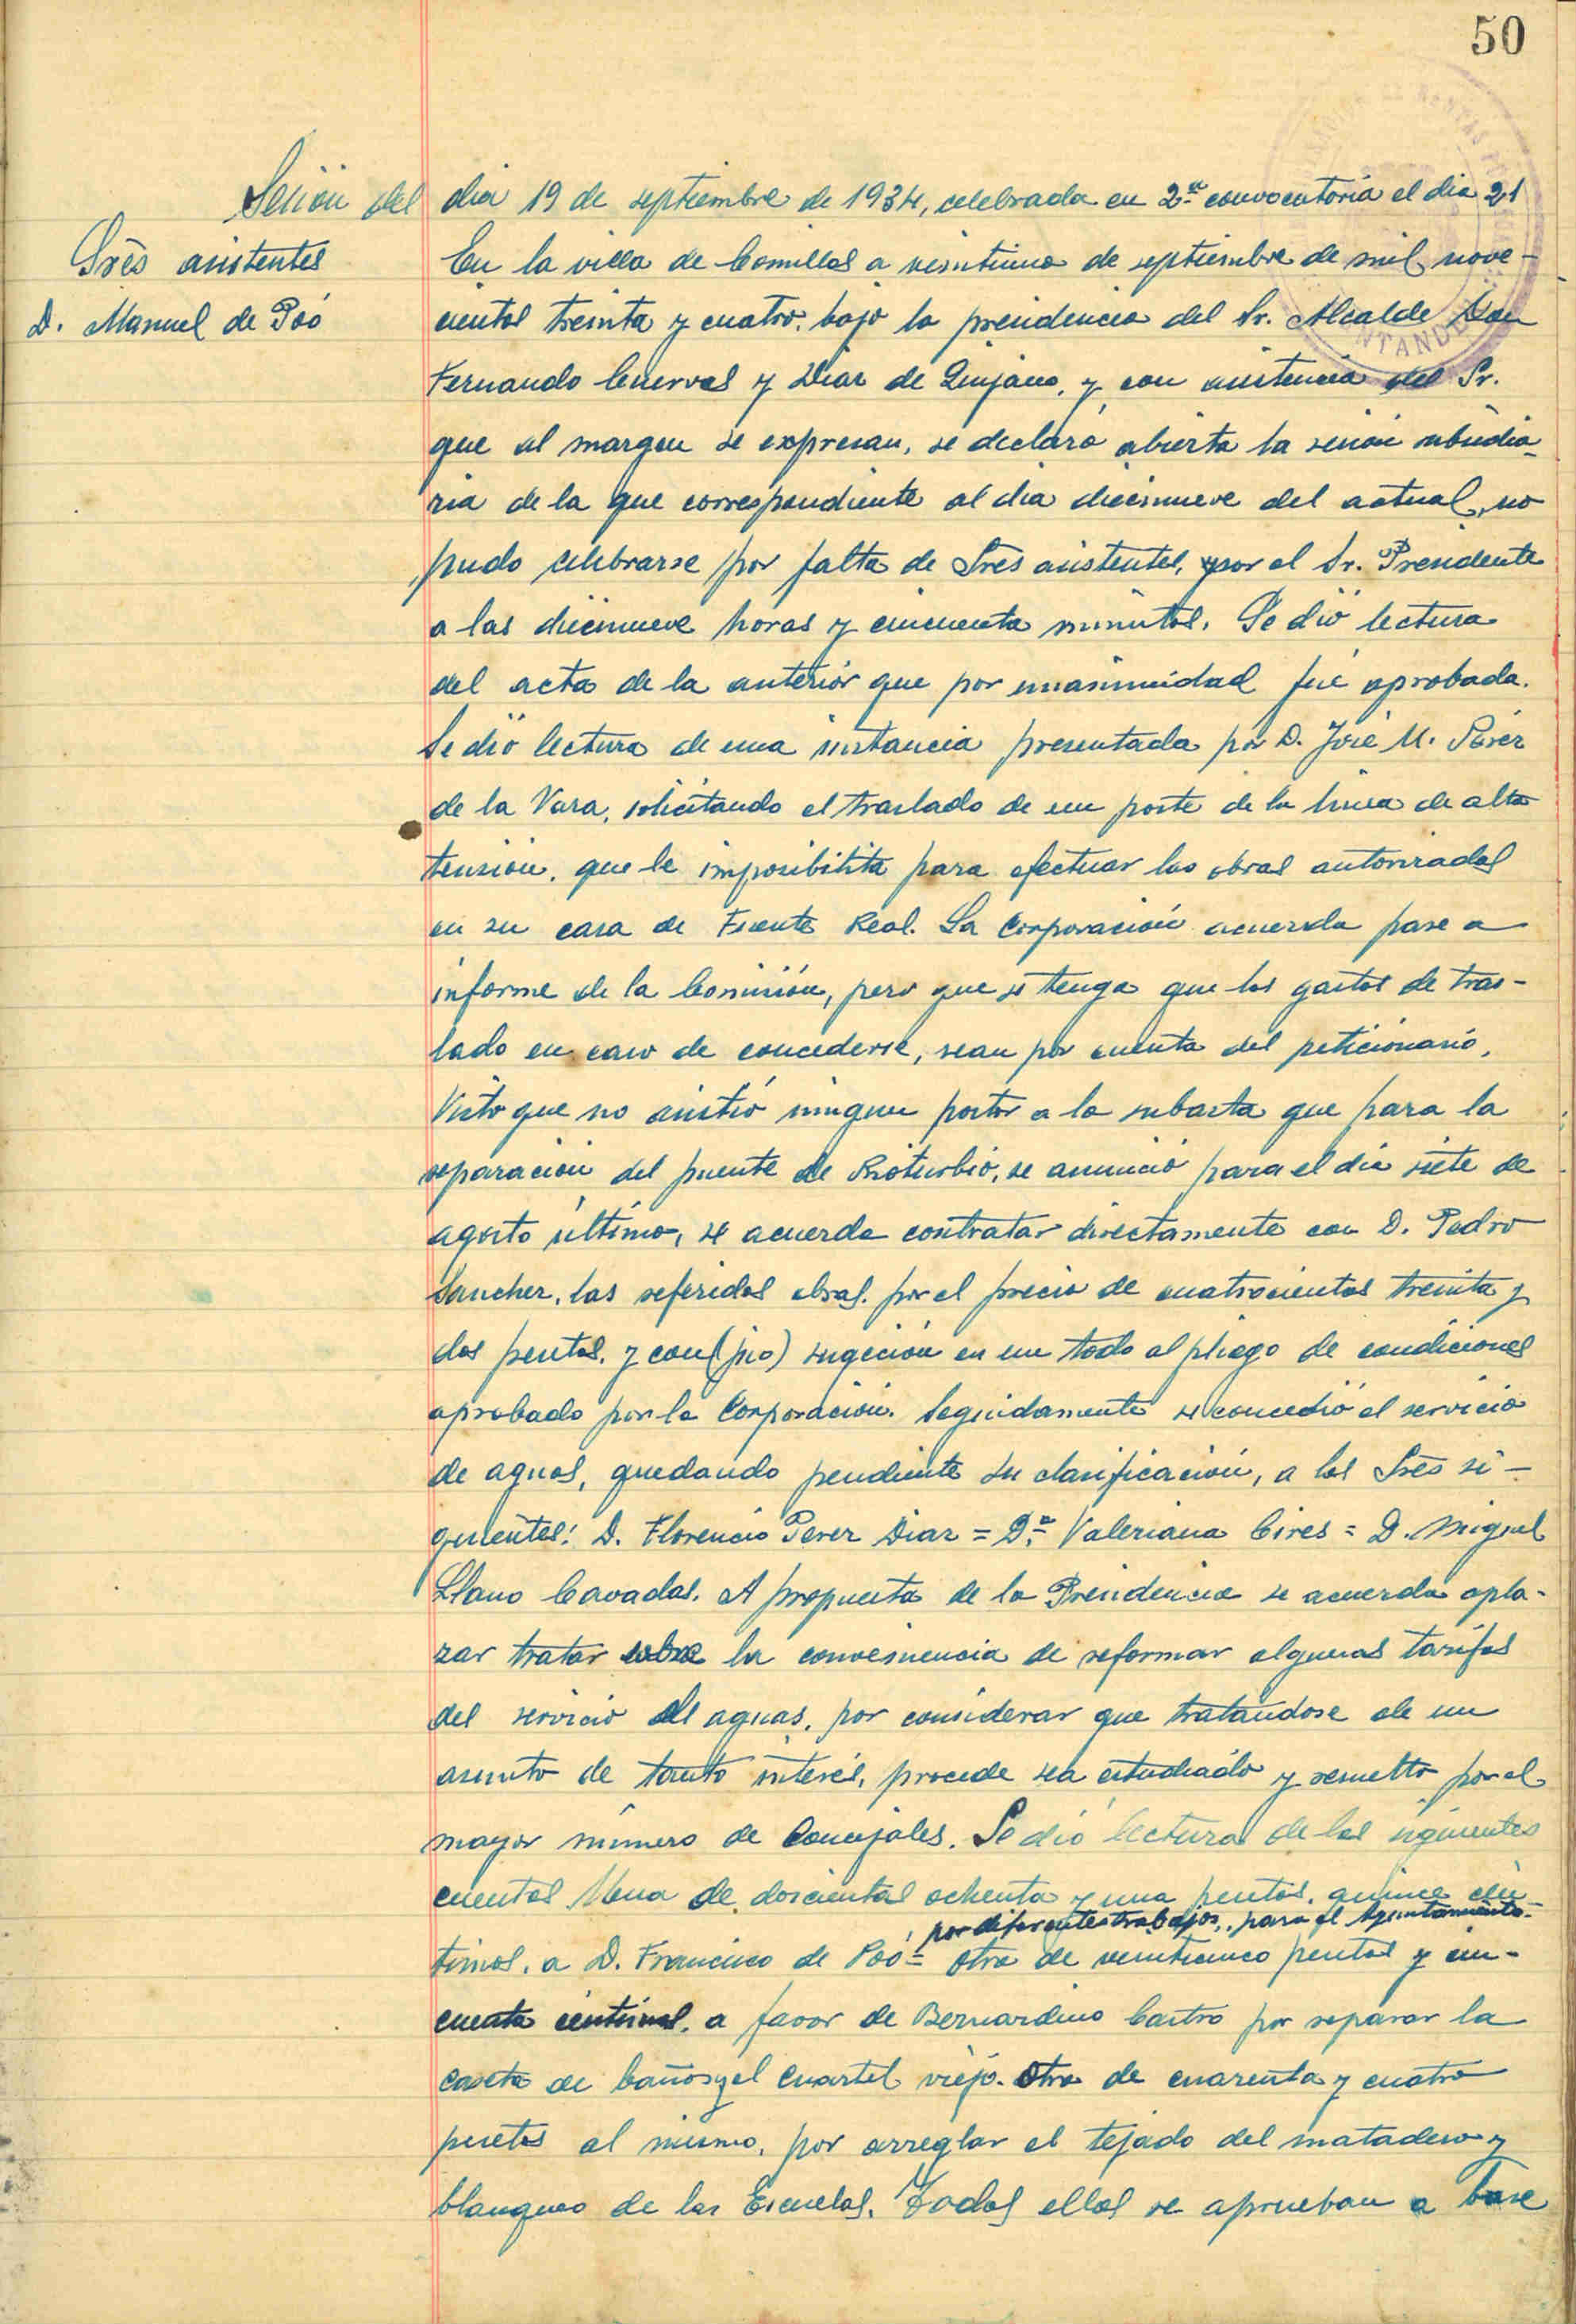 50
Sesión del dia 19 de septiembre de 1934, celebrada en 2ª convocatoria el dia 21
Srès asistentes
D. Manuel de Poó
En la villa de Comillas a veintiuno de septiembre de mil nove-
cientos treinta y cuatro, bajo la presidencia del Sr. Alcalde Don
Fernando Cuervas y Diaz de Quijano, y con asistencia del Sr.
que al margen se expresan, se declaró abierta la sesión subsidia-
ria de la que correspondiente al dia diecinueve del actual, no
pudo celebrarse por falta de Srès asistentes, por el Sr. Presidente
a las diecinueve horas y cincuenta minutos. Se dió lectura
del acta de la anteriór que por unanimidad fué aprobada.
Se dió lectura de una instancia presentada por D. José M. Pérez
de la Vara, solicitando el traslado de un poste de la linea de alta
tensión, que le imposibilita para efectuar las obras autorizadas
en su casa de Fuente Real. La Corporación acuerda pase a
informe de la Comisión, pero que se tenga que los gastos de tras-
lado en caso de concederse, sean por cuenta del peticionario.
Visto que no asistió ningun postor a la subasta que para la
reparación del puente de Rioturbio, se anunció para el dia siete de
agosto último, se acuerda contratar directamente con D. Pedro
Sanchez, las referidas obras, por el precio de cuatrocientas treinta y
dos pesetas, y con (jno) sugeción en un todo al pliego de condiciones
aprobado por la Corporación. Seguidamente se concedió el servicio
de aguas, quedando pendiente su clasificación, a los Srès si-
guientes: D. Florencio Perez Diaz = D.ª Valeriana Cires = D. Miguel
Llano Cavadas. A propuesta de la Presidencia se acuerda apla-
zar tratar sobre la conveniencia de reformar algunas tarifas
del servicio de aguas, por considerar que tratandose de un
asunto de tanto interés, procede sea estudiado y resuelto por el
mayor número de Concejales. Se dió lectura de las siguientes
cuentas Una de doscientas ochenta y una pesetas, quince cén-
por diferentes trabajos, para el Ayuntamiento-
timos, a D. Francisco de Poó = otra de veinticinco pesetas y cin-
cuenta centimos, a favor de Bernardino Castro por reparar la
caseta de baños y el cuartel viejo. Otra de cuarenta y cuatro
pesetas al mismo, por arreglar el tejado del matadero y
blanqueo de las Escuelas. Todas ellas se aprueban a base